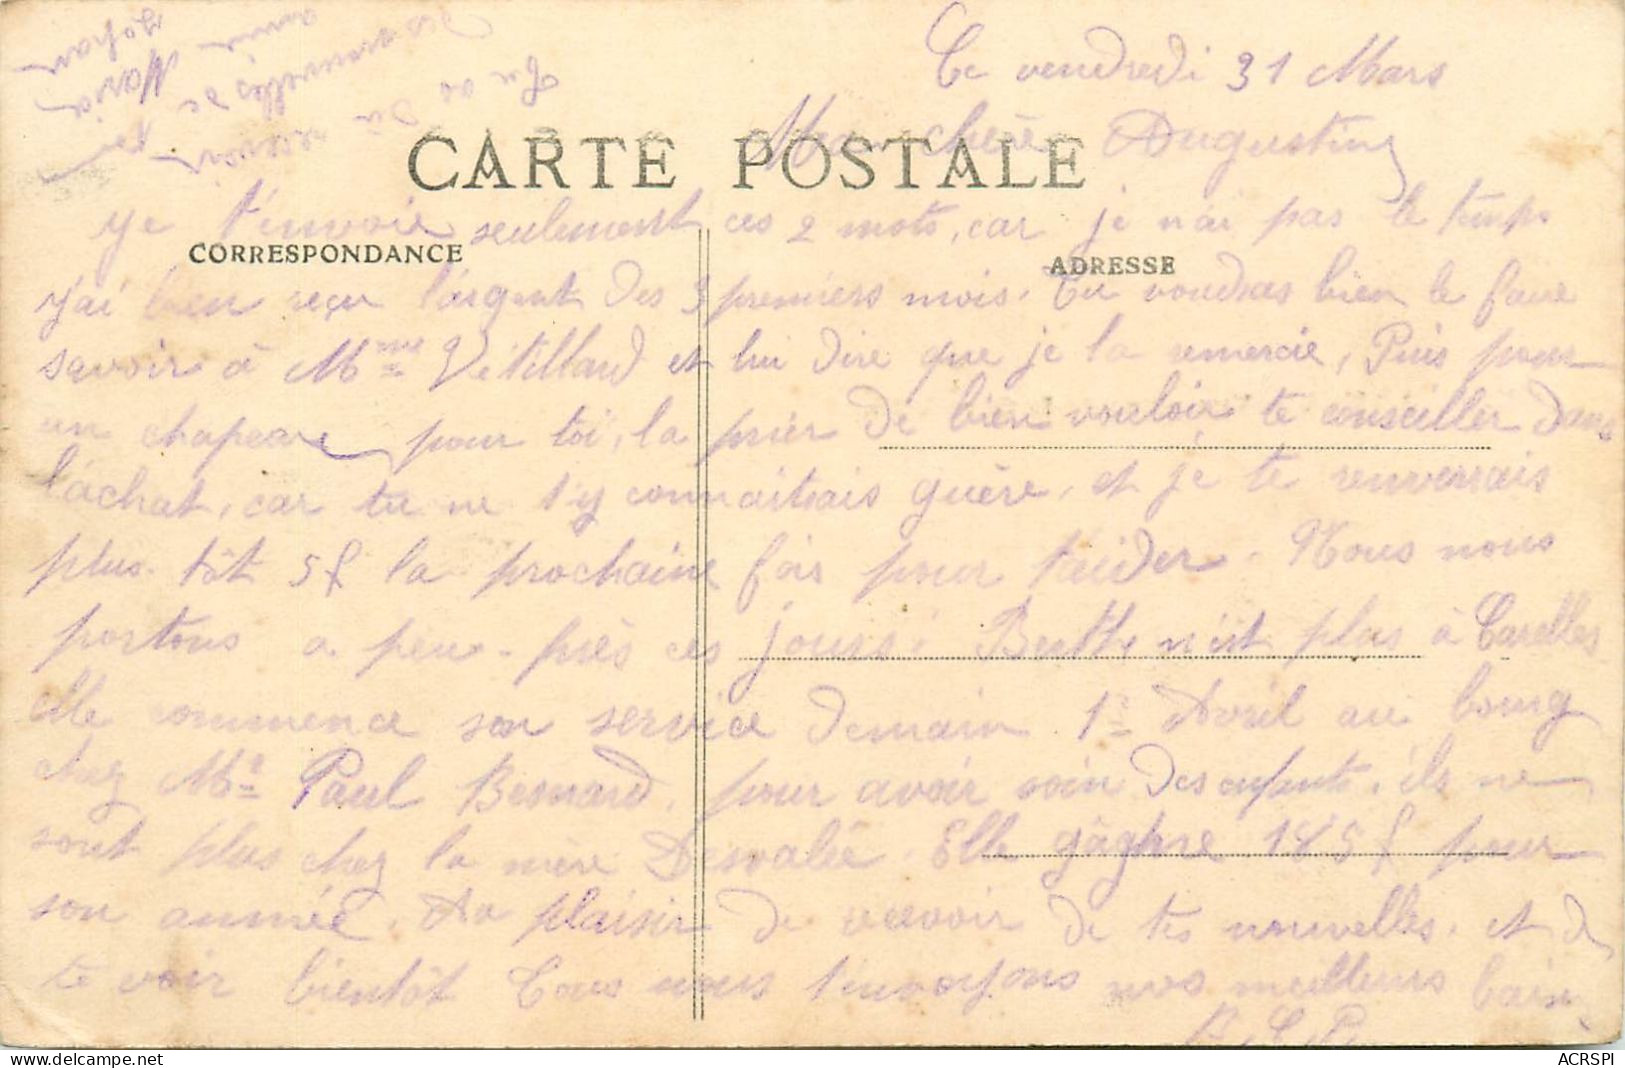 Ce vendredi 31 Mars
Ma chère Augustine
CARTE POSTALE
CORRESPONDANCE
ADRESSE
Je t'envoie seulement ces 2 mots, car je n'ai pas le temps
j'ai bien reçu l'argent des 3 premiers mois. Tu voudras bien le faire
savoir à Mme Vétillard et lui dire que je la remercie, Puis pour
un chapeau pour toi, la prier de bien vouloir te conseiller dans
l'achat, car tu ne t'y connaitrais guère, et je te renverrais
plus tôt 5f la prochaine fois pour t'aider. Nous nous
portons a peu-près ces jours; Berthe n'est plus à Carelles
elle commence son service demain 1r Avril au bourg
chez Me Paul Besnard, pour avoir soin des enfants, ils ne
sont plus chez la mère Desvalée. Elle gâghne 185f pour
son année. Au plaisir de recevoir de tes nouvelles, et de
te voir bientôt Tous nous t'envoyons nos meilleurs
B. C. P.
Tu as dû recevoir
des nouvelles de ton
amie Maria
ACRSPI